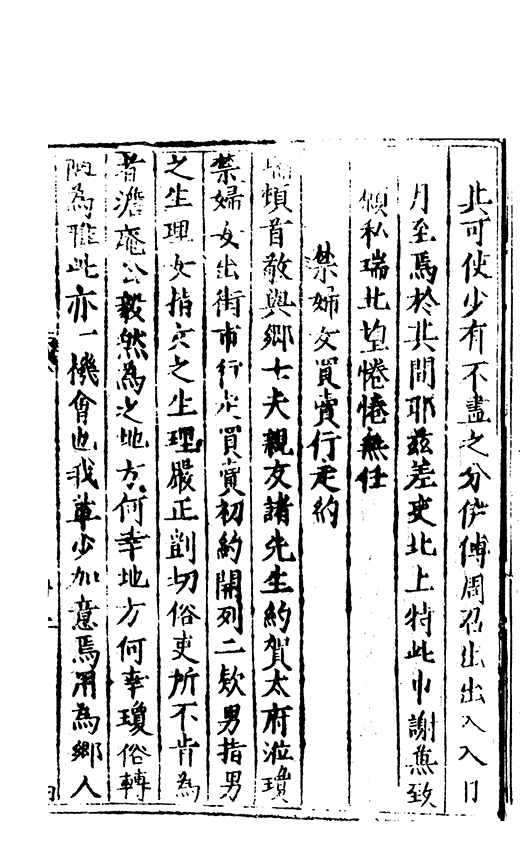 此可使少有不盡之分伊傅周召出出入入日
月至焉於其間耶兹差吏北上特此申謝無致
傾私瑞北望惓惓無任
禁婦女買賣行走約
頓首敬與鄉士夫親友諸先生約賀太府涖瓊
禁婦女出街市行走買賣初約開列二欵男指男
之生理女指女之生理嚴正剴切俗吏所不肯為
者澹菴公毅然為之地方何幸地方何幸瓊俗轉
陋為雅此亦一機會也我輩少加意焉用為鄉人